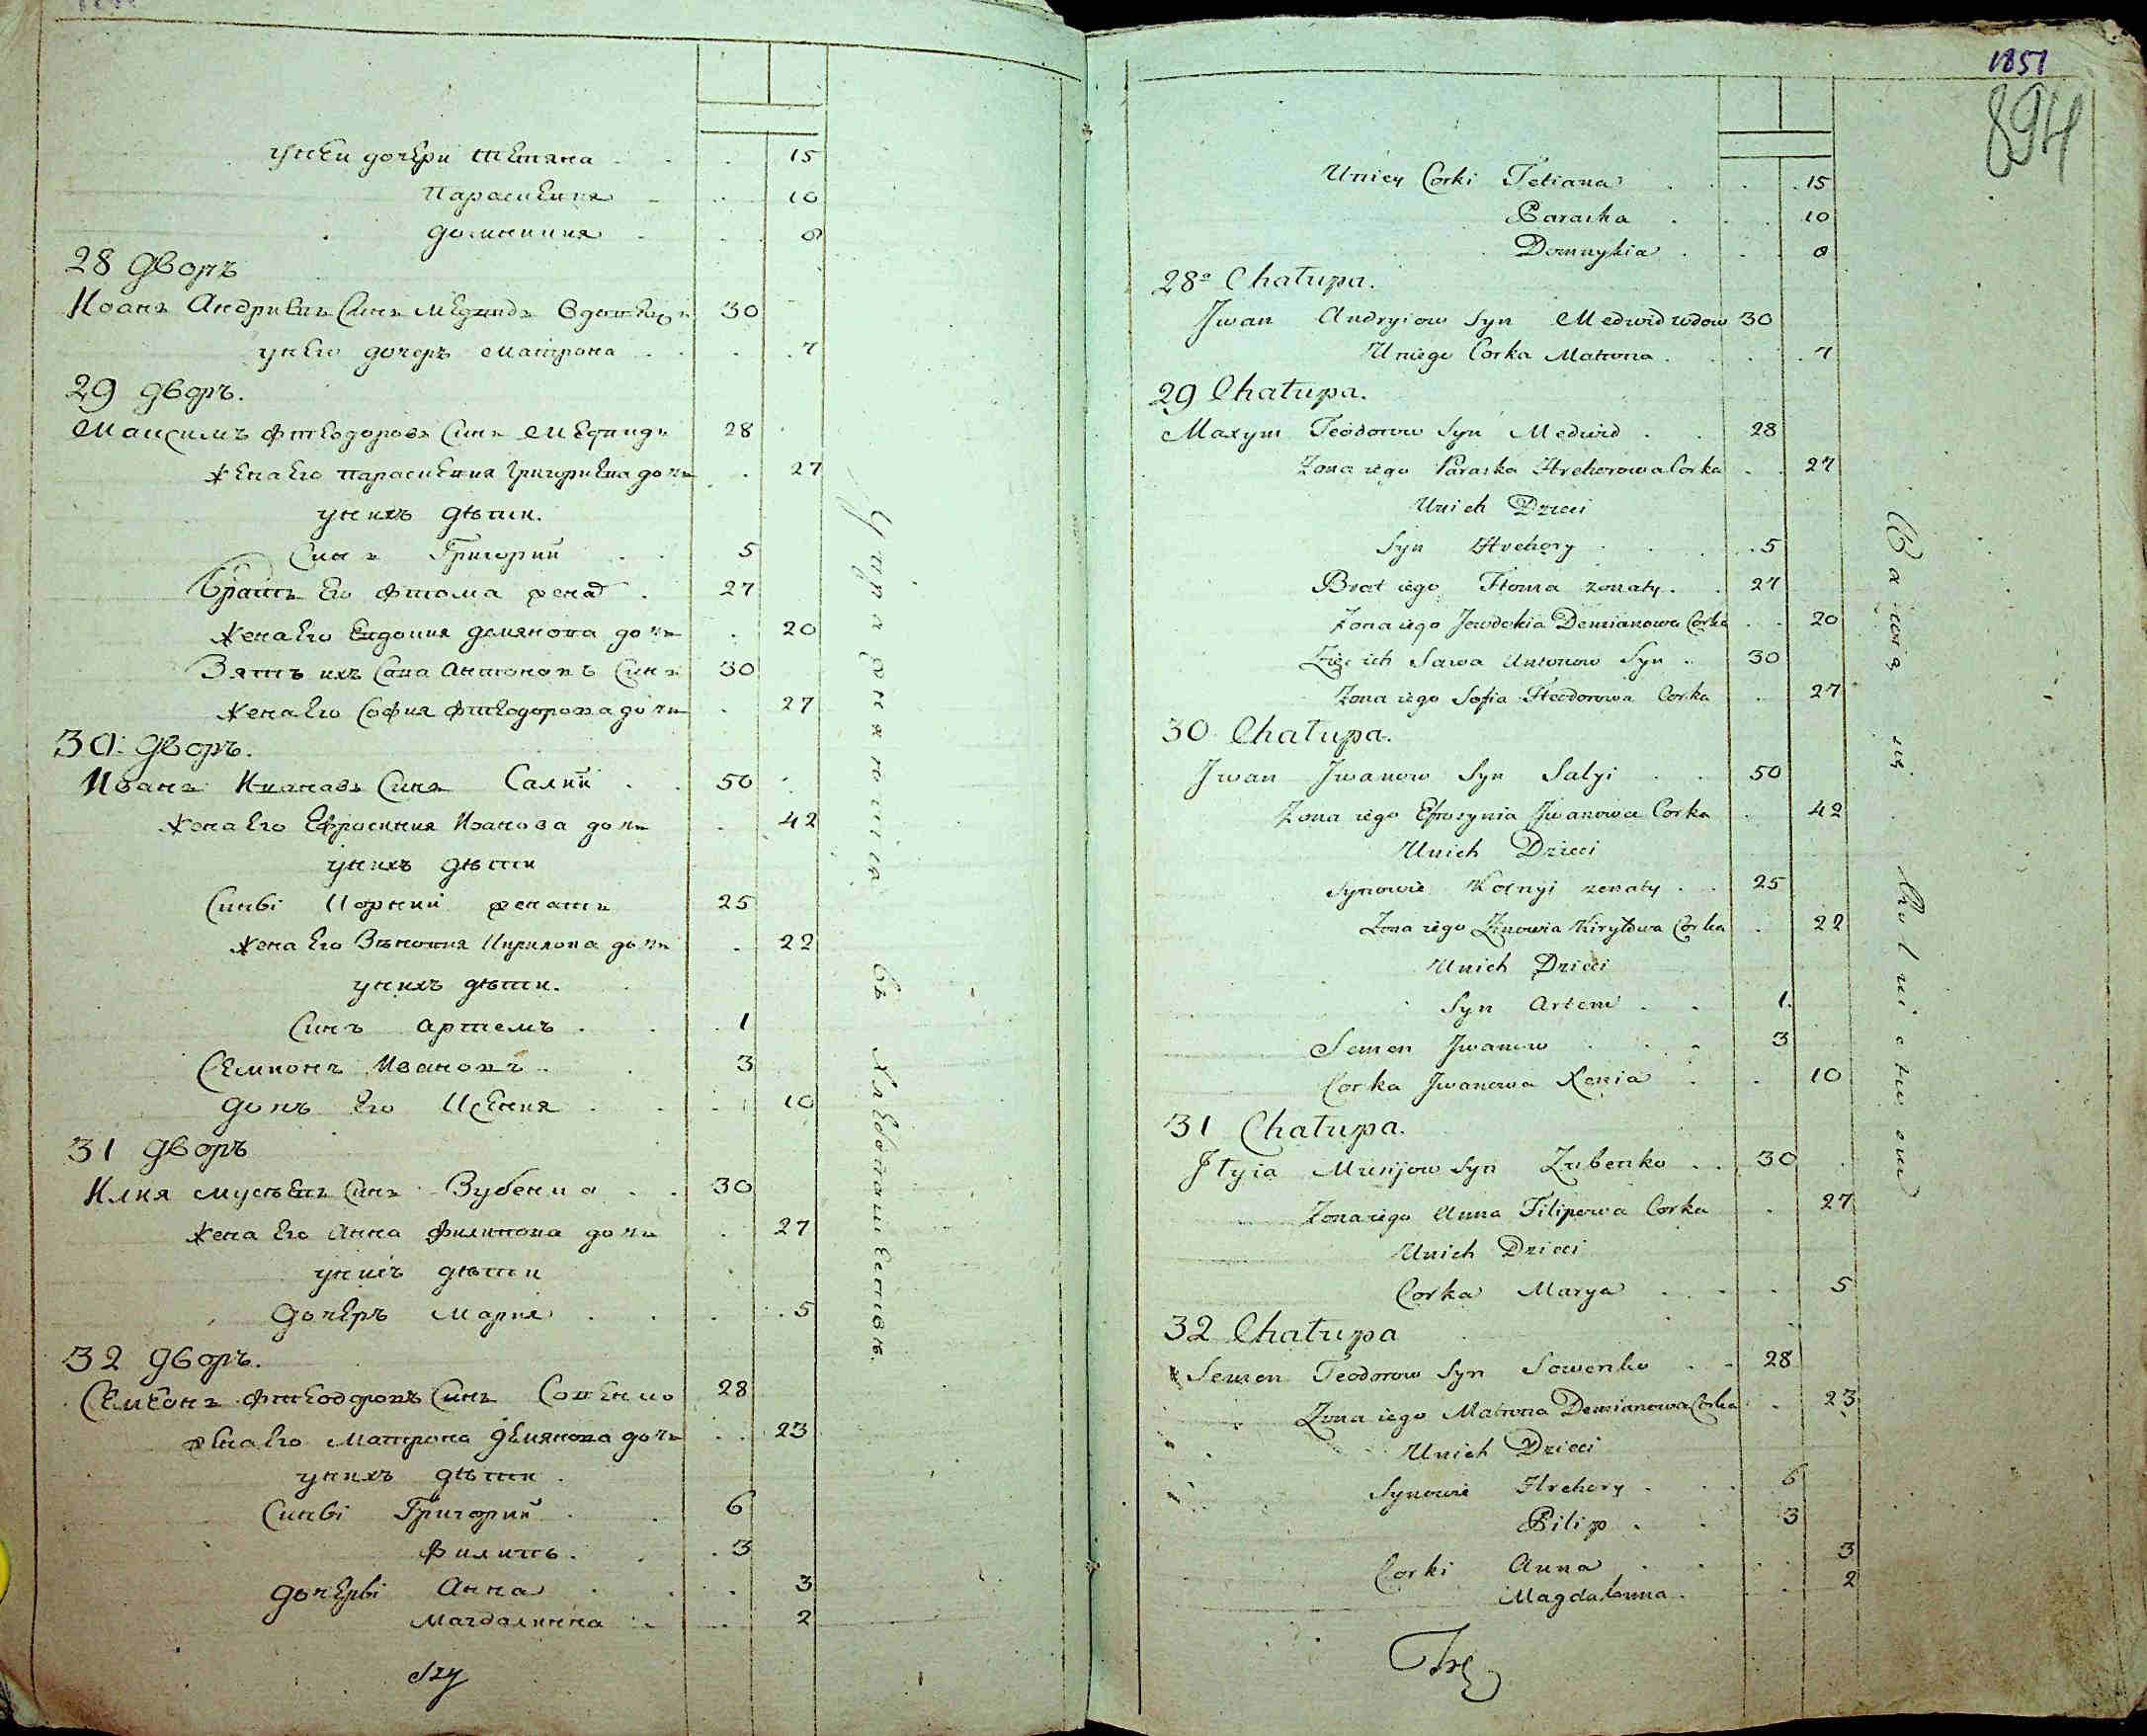 унеи дочери Тетяна . . 15
Параскевия . . 10
Домникия . . 8
28 дворъ
Иоанъ Андриевъ Синъ Медвидь Вдовецъ 30
унего дочеръ Матрона . . . 7
29 дворъ.
Максимъ Фтеодоровъ Синъ Медвидь 28
Жена Его Параскевия Григориева дочь . 27
унихъ дѣти.
Синъ Григорий . . 5
Братъ Его Фтома женат . 27
Жена Его Евдокия Демянова дочь . 20
Зять ихъ Сава Антоновъ Синъ 30
Жена Его София Фтеодорова дочь . 27
30: дворъ.
Иванъ Ивановъ Синъ Салий . . 50
Жена Его Ефросиния Иванова дочь . 42
унихъ дѣти
Синві Корний женатъ 25
Жена Его Зѣновия Кирилова дочь . 22
унихъ дѣти.
Синъ Артемъ . . 1
Семионъ Ивановъ . . 3
дочь Его Ксения . . . 10
31 дворъ
Илия Мусѣевъ Синъ Зубенко . . 30
Жена Его Анна Филипова дочь . 27
унихъ дѣти
Дочеръ Мария . . . 5
32 дворъ.
Семеонъ Фтеодоровъ Синъ Совенко 28
жена Его Матрона Демянова дочь . . 23
унихъ дѣти .
Синві Григорий . . 6
Филипъ . . 3
Дочерві Анна . . . 3
Магдалинна . . 2
Упражняются въ Хлебопашествѣ.
1851
894
Uniey Corki Tetiana . . . 15
Paraska . . . 10
Domnykia . . . 8
28a Chałupa.
Jwan Andryiow Syn Medwid wdow 30
Uniego Corka Matrona . . . 7
29 Chałupa.
Maxym Teodorow Syn Medwid . . 28
Zona iego Paraska Hrehorowa Corka . . 27
Unich Dzieci
Syn Hrehory . . . 5
Brat iego Homa zonaty . . 27
Zona iego Jewdokia Demianowa Corka . . 20
Zięć ich Sawa Antonow Syn . 30
Zona iego Sofia Fteodorowa Corka . 27
30 Chałupa.
Jwan Jwanow Syn Salyi . . 50
Zona iego Efrosynia Jwanowa Corka . 42
Unich Dzieci
Synowie Kornyi zonaty . . 25
Zona iego Zinowia Kiryłowa Corka . 22
Unich Dzieci
Syn Artem . . 1.
Semen Jwanow . . . 3
Corka Jwanowa Xenia . . 10
31 Chałupa.
Jłyia Musijow Syn Zubenko . . 30
Zona iego Anna Filipowa Corka . 27
Unich Dzieci
Corka Marya . . . 5
32 Chałupa
Semen Teodorow Syn Sowenko . . 28
Zona iego Matrona Demianowa Corka . 23
Unich Dzieci
Synowie Hrehory . . . 6
Pilip . . 3
Corki Anna . . . . 3
Magdalenna . . . 2
Bawią się Rolnictwem